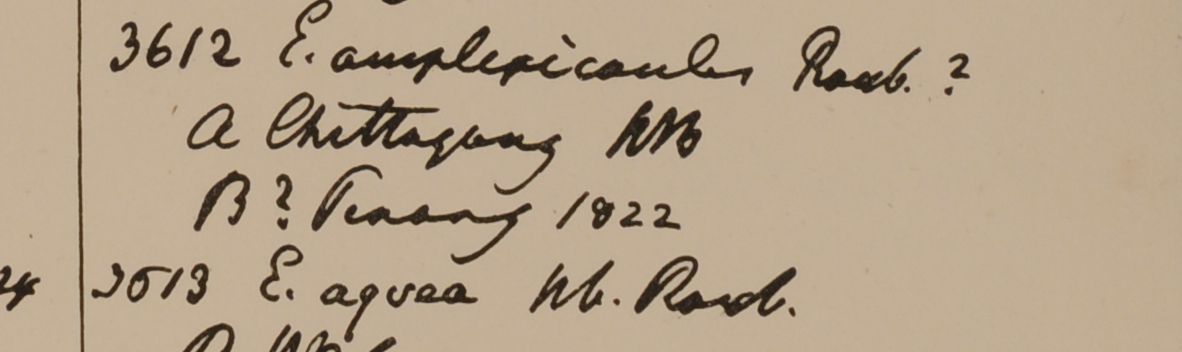 3612 E. amplexicaulis Roxb. ?
A Chittagong HB
B? Penang 1822
24 3613 E. aquea Hb. Roxb.